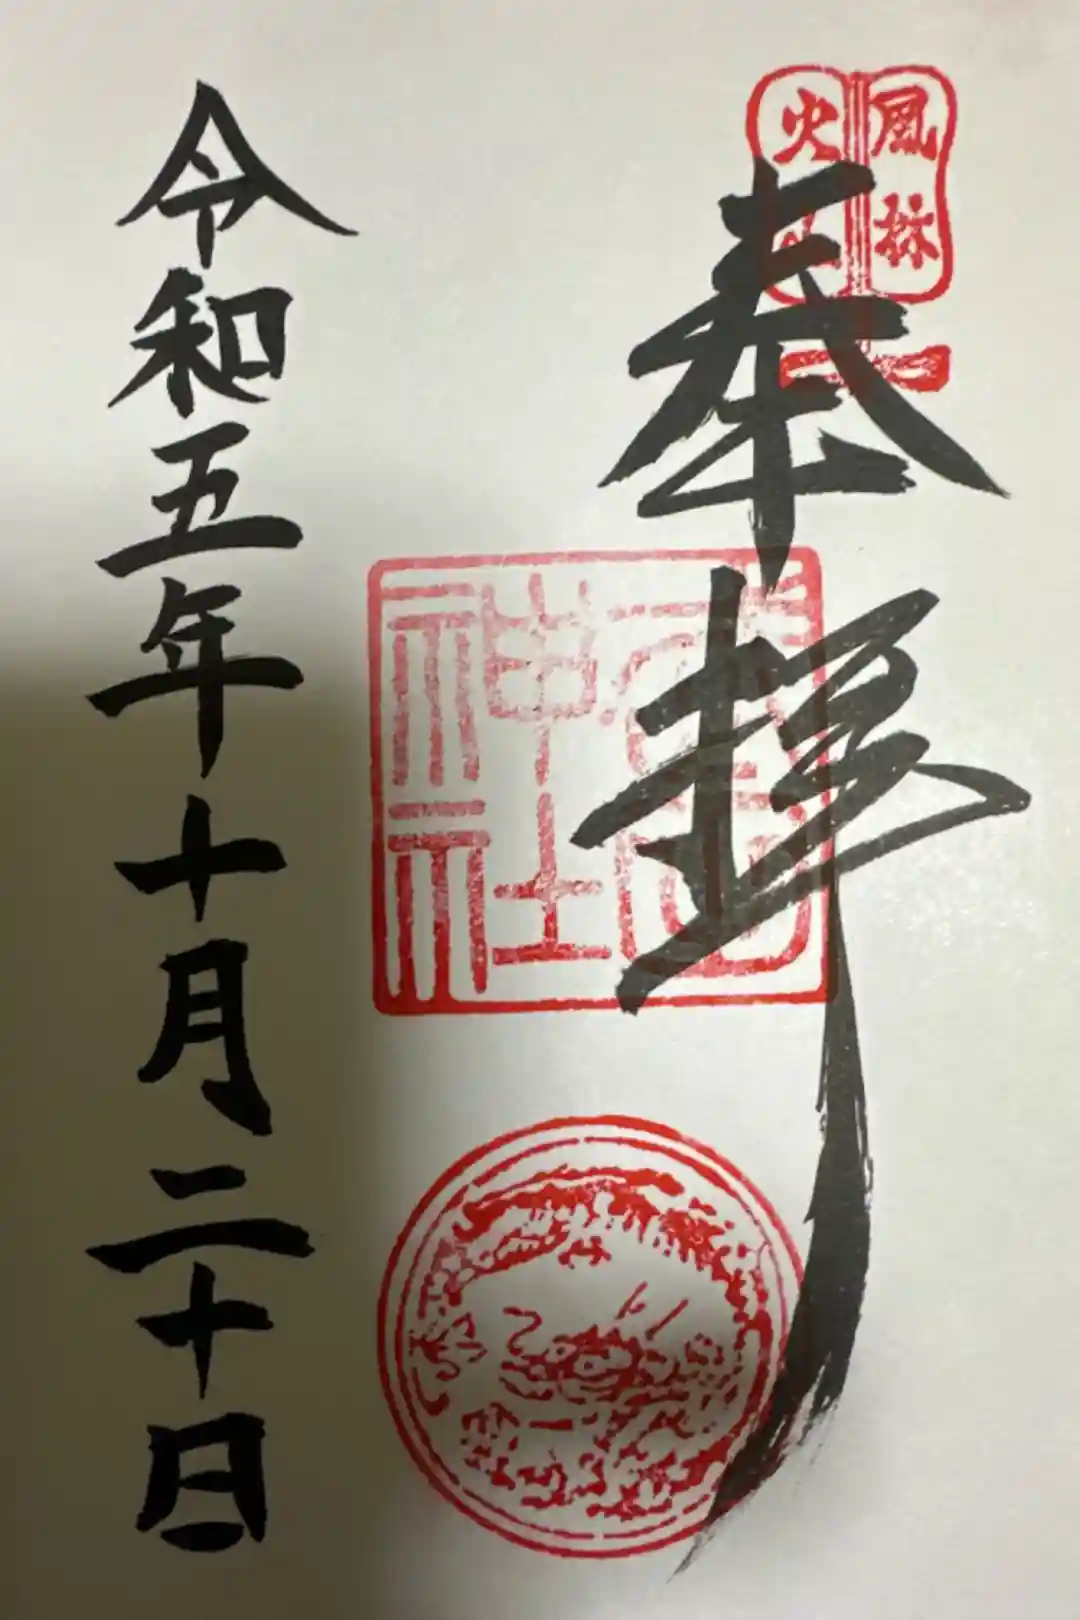 風林
火山
奉拝
武田
神社
令和五年十月二十日